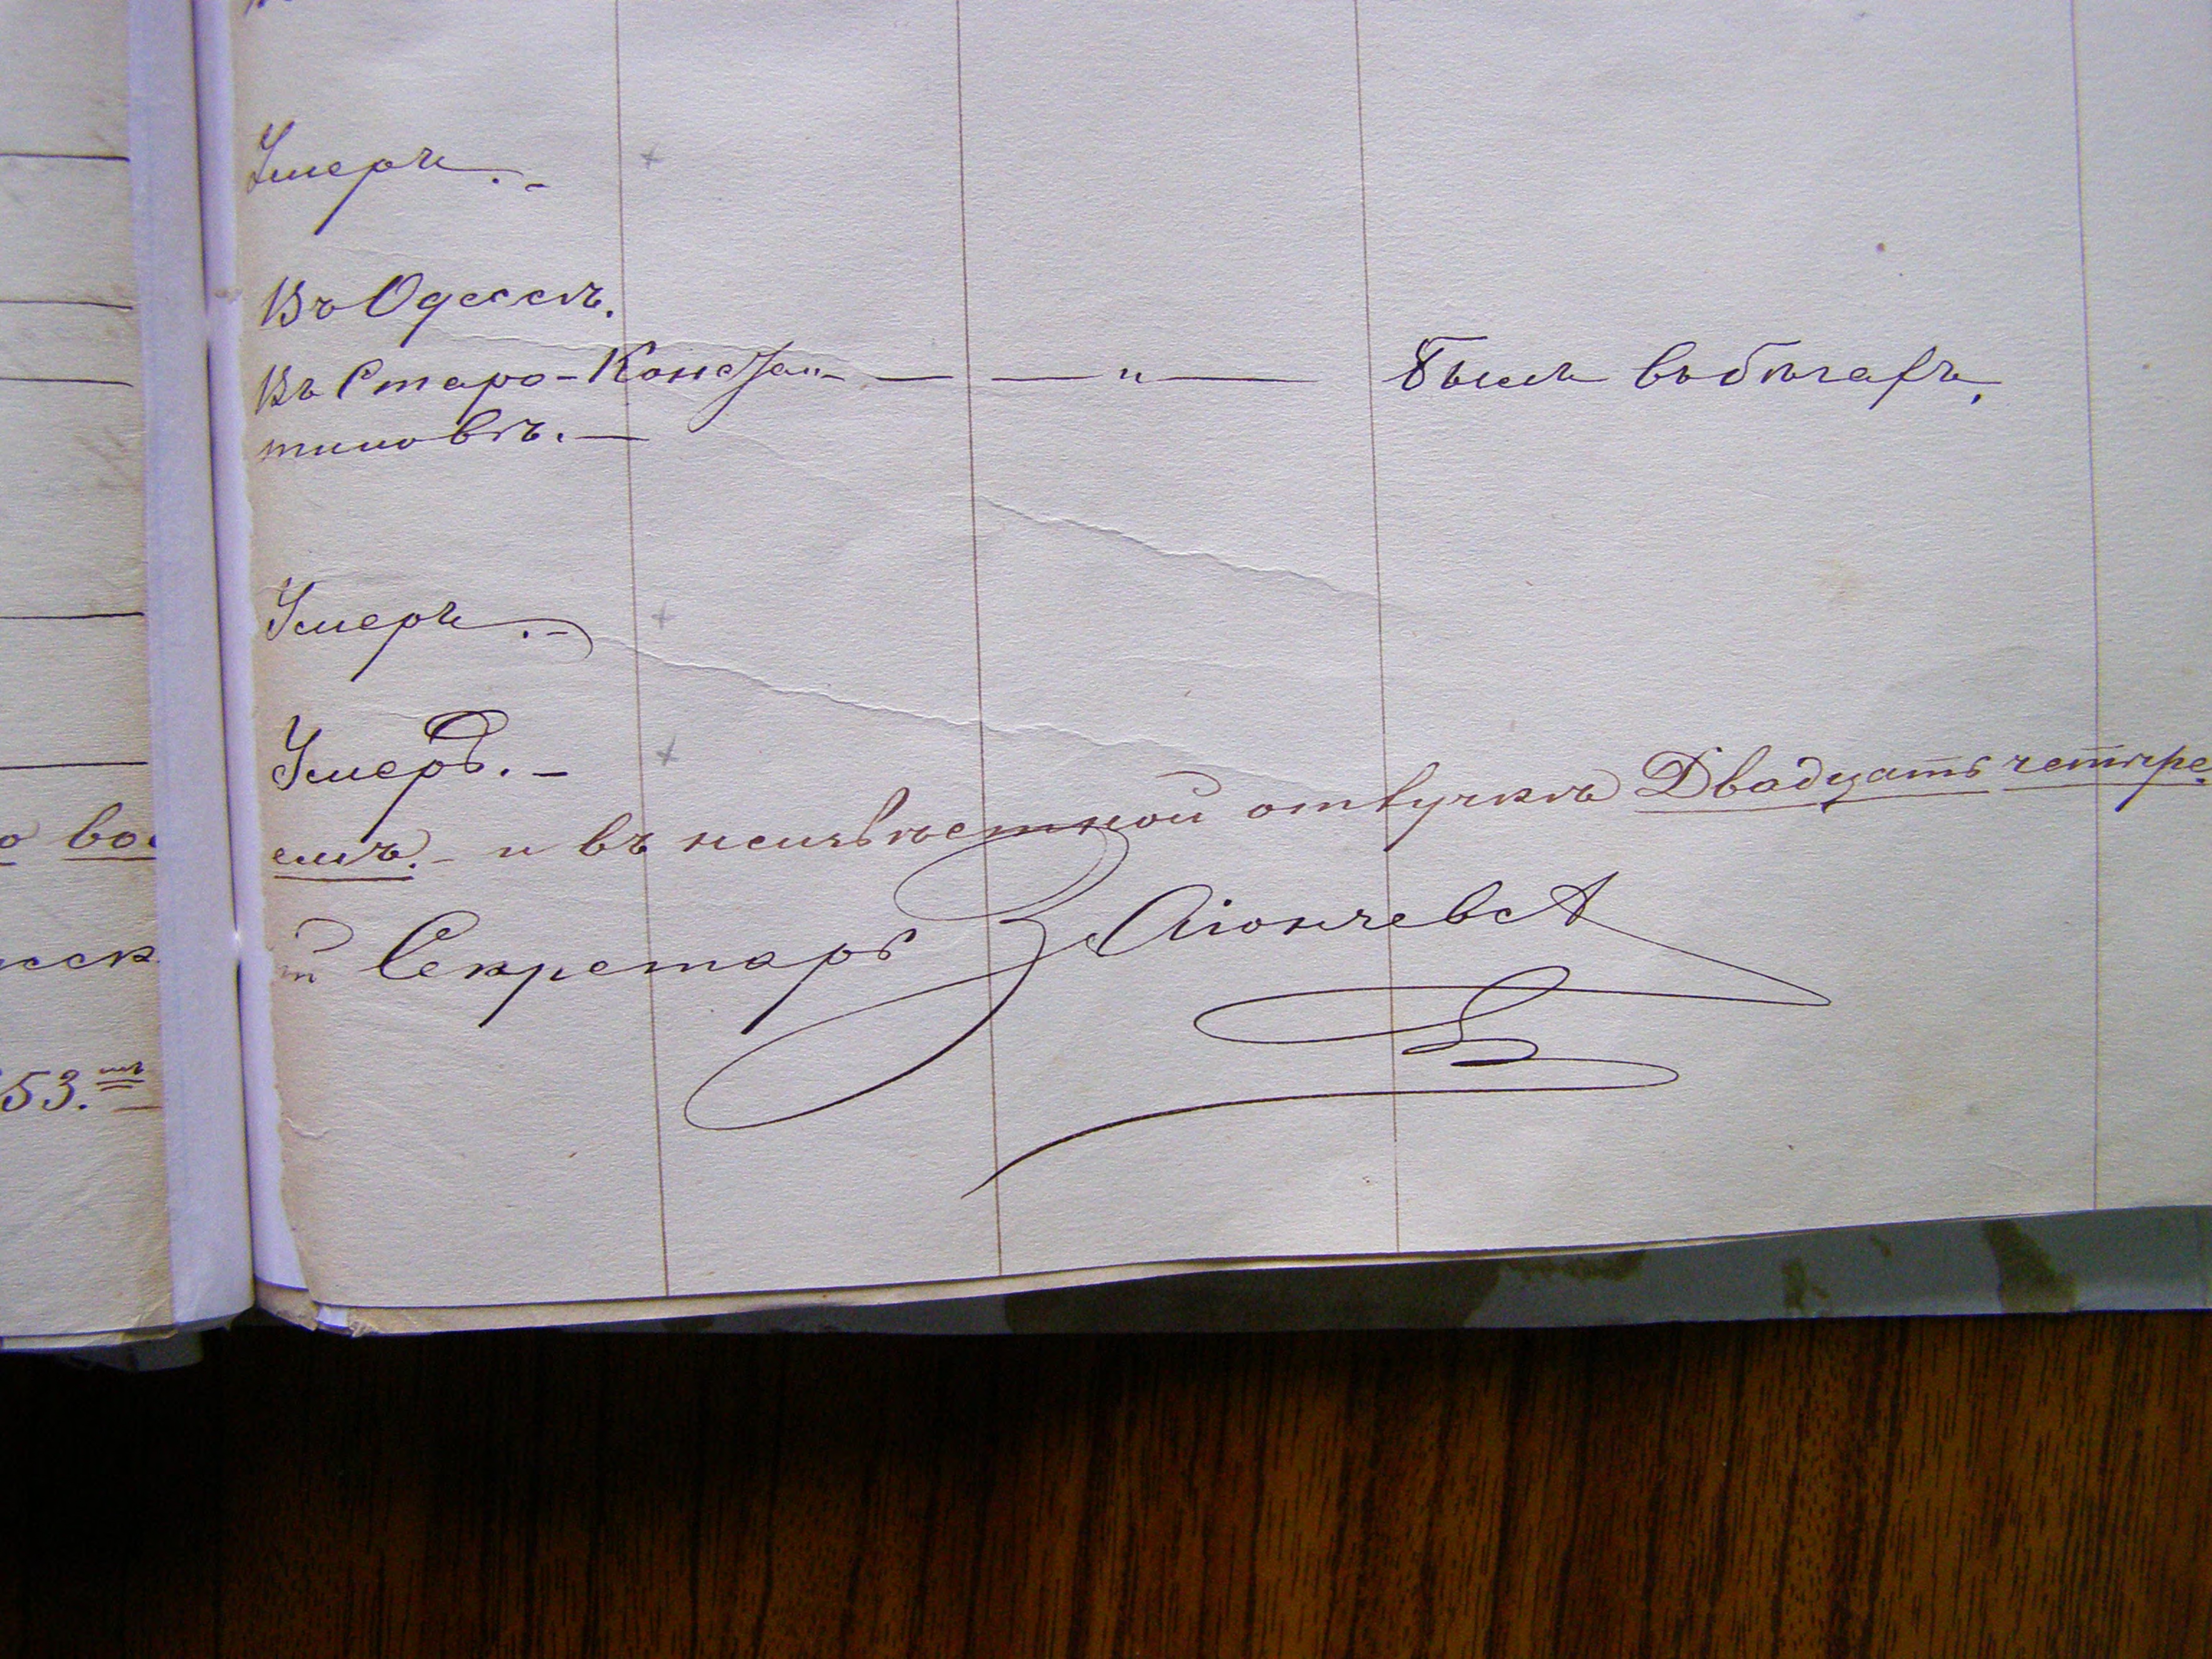 Умеръ. -
Въ Одессѣ.
Въ Старо-Констан- — — " — Былъ въ бѣгахъ.
тиновѣ. —
Умеръ. -
Умеръ. -
о вос
емъ. - и въ неизвѣстной отлучкѣ Двадцать четыре.
Секретарь Заіончевс
53.